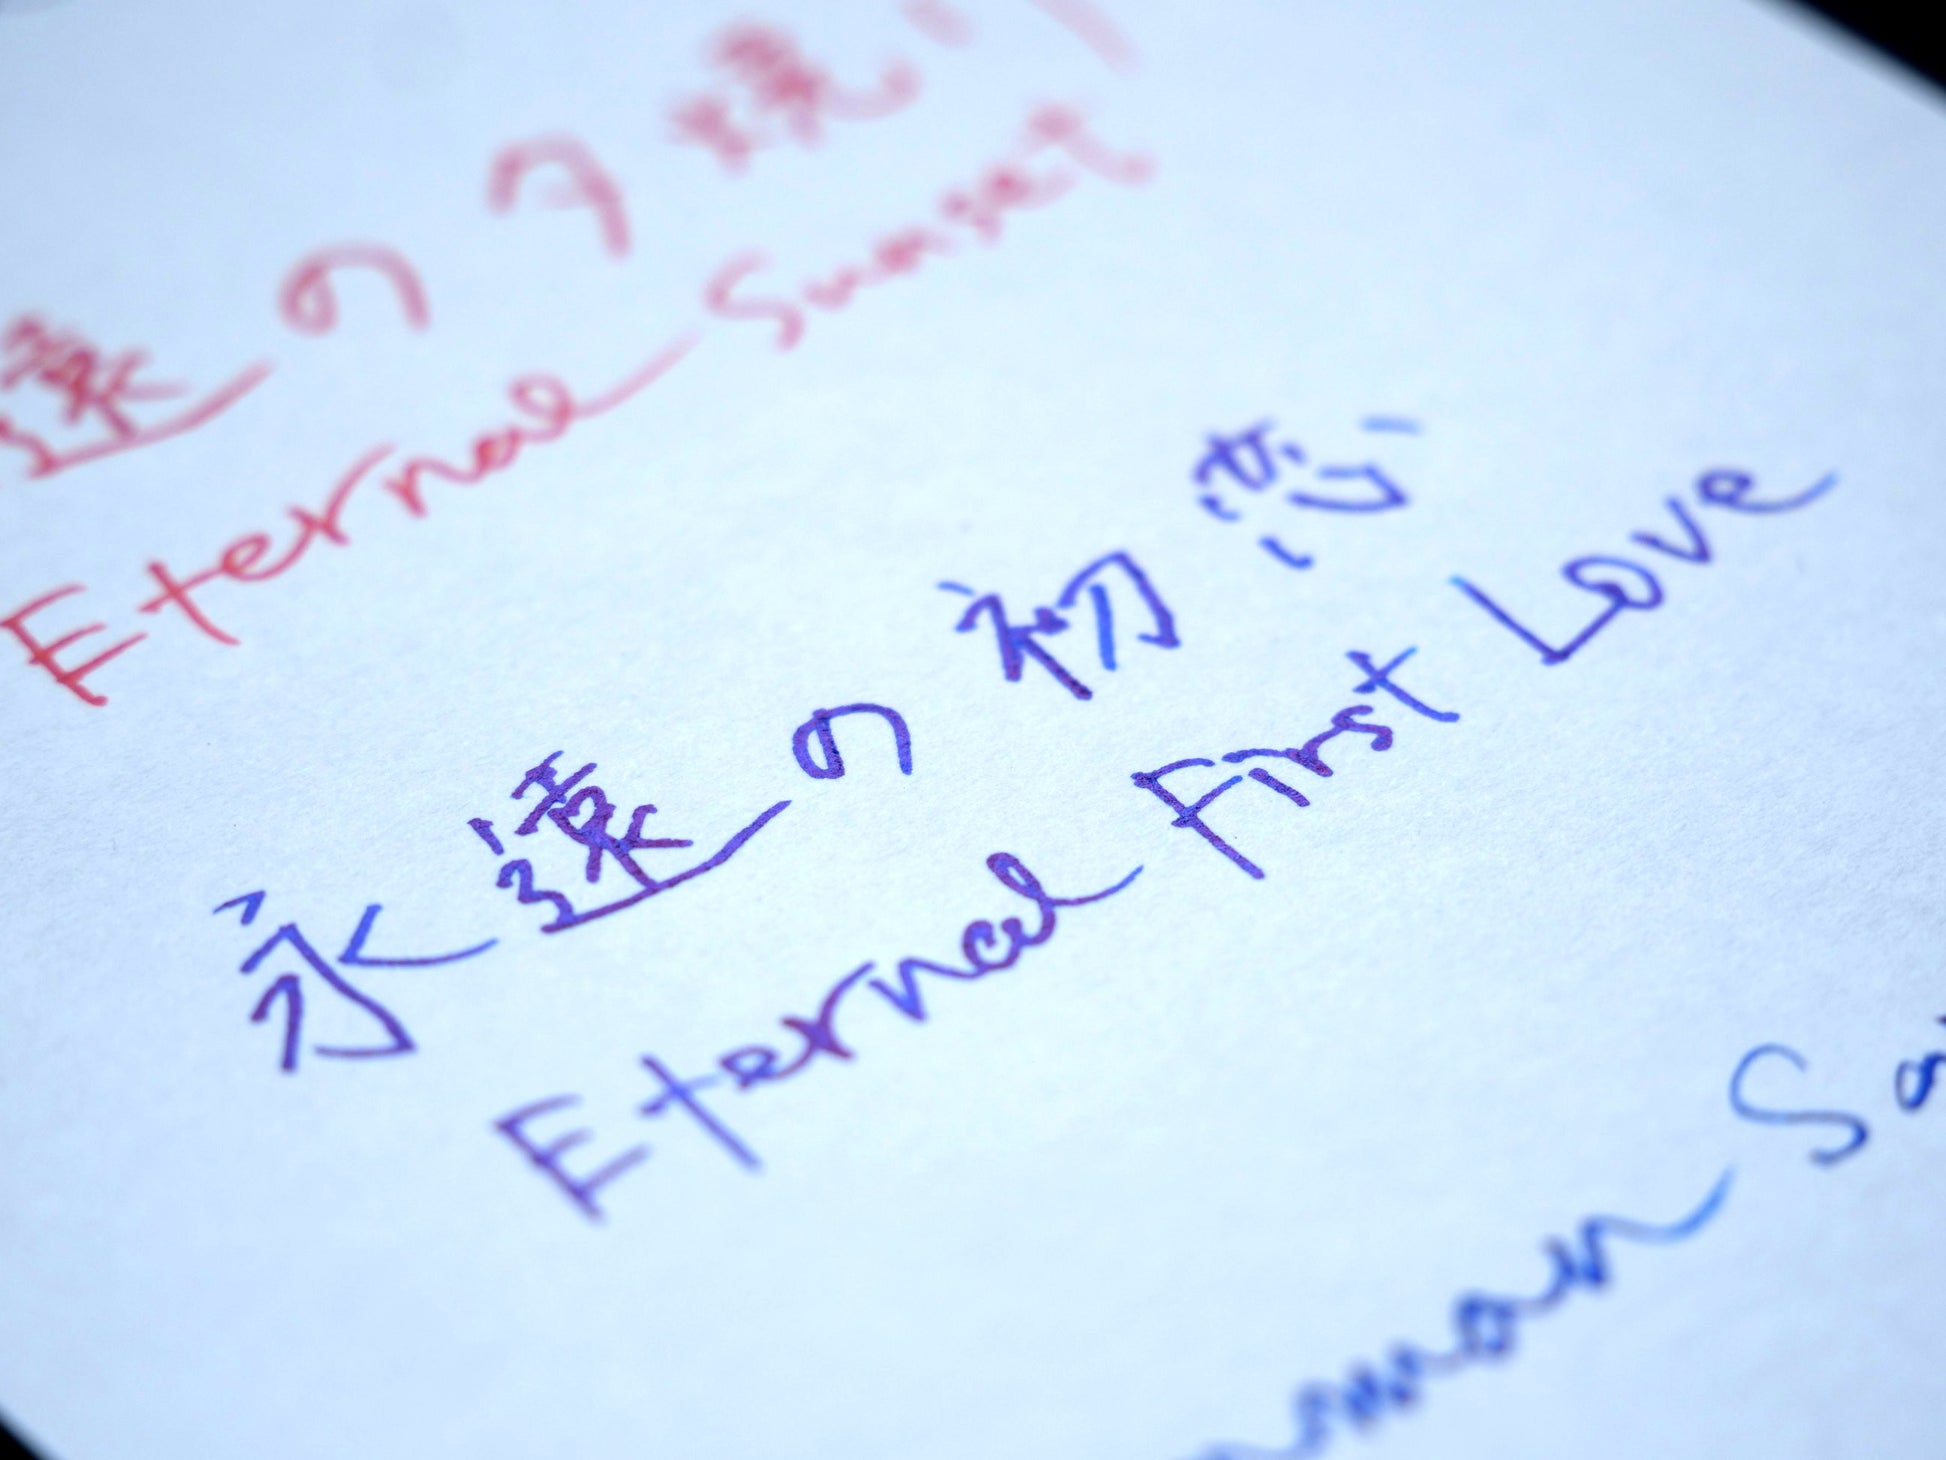 遠の夕焼け
Eternal Sunset
永遠の初恋
Eternal First Love